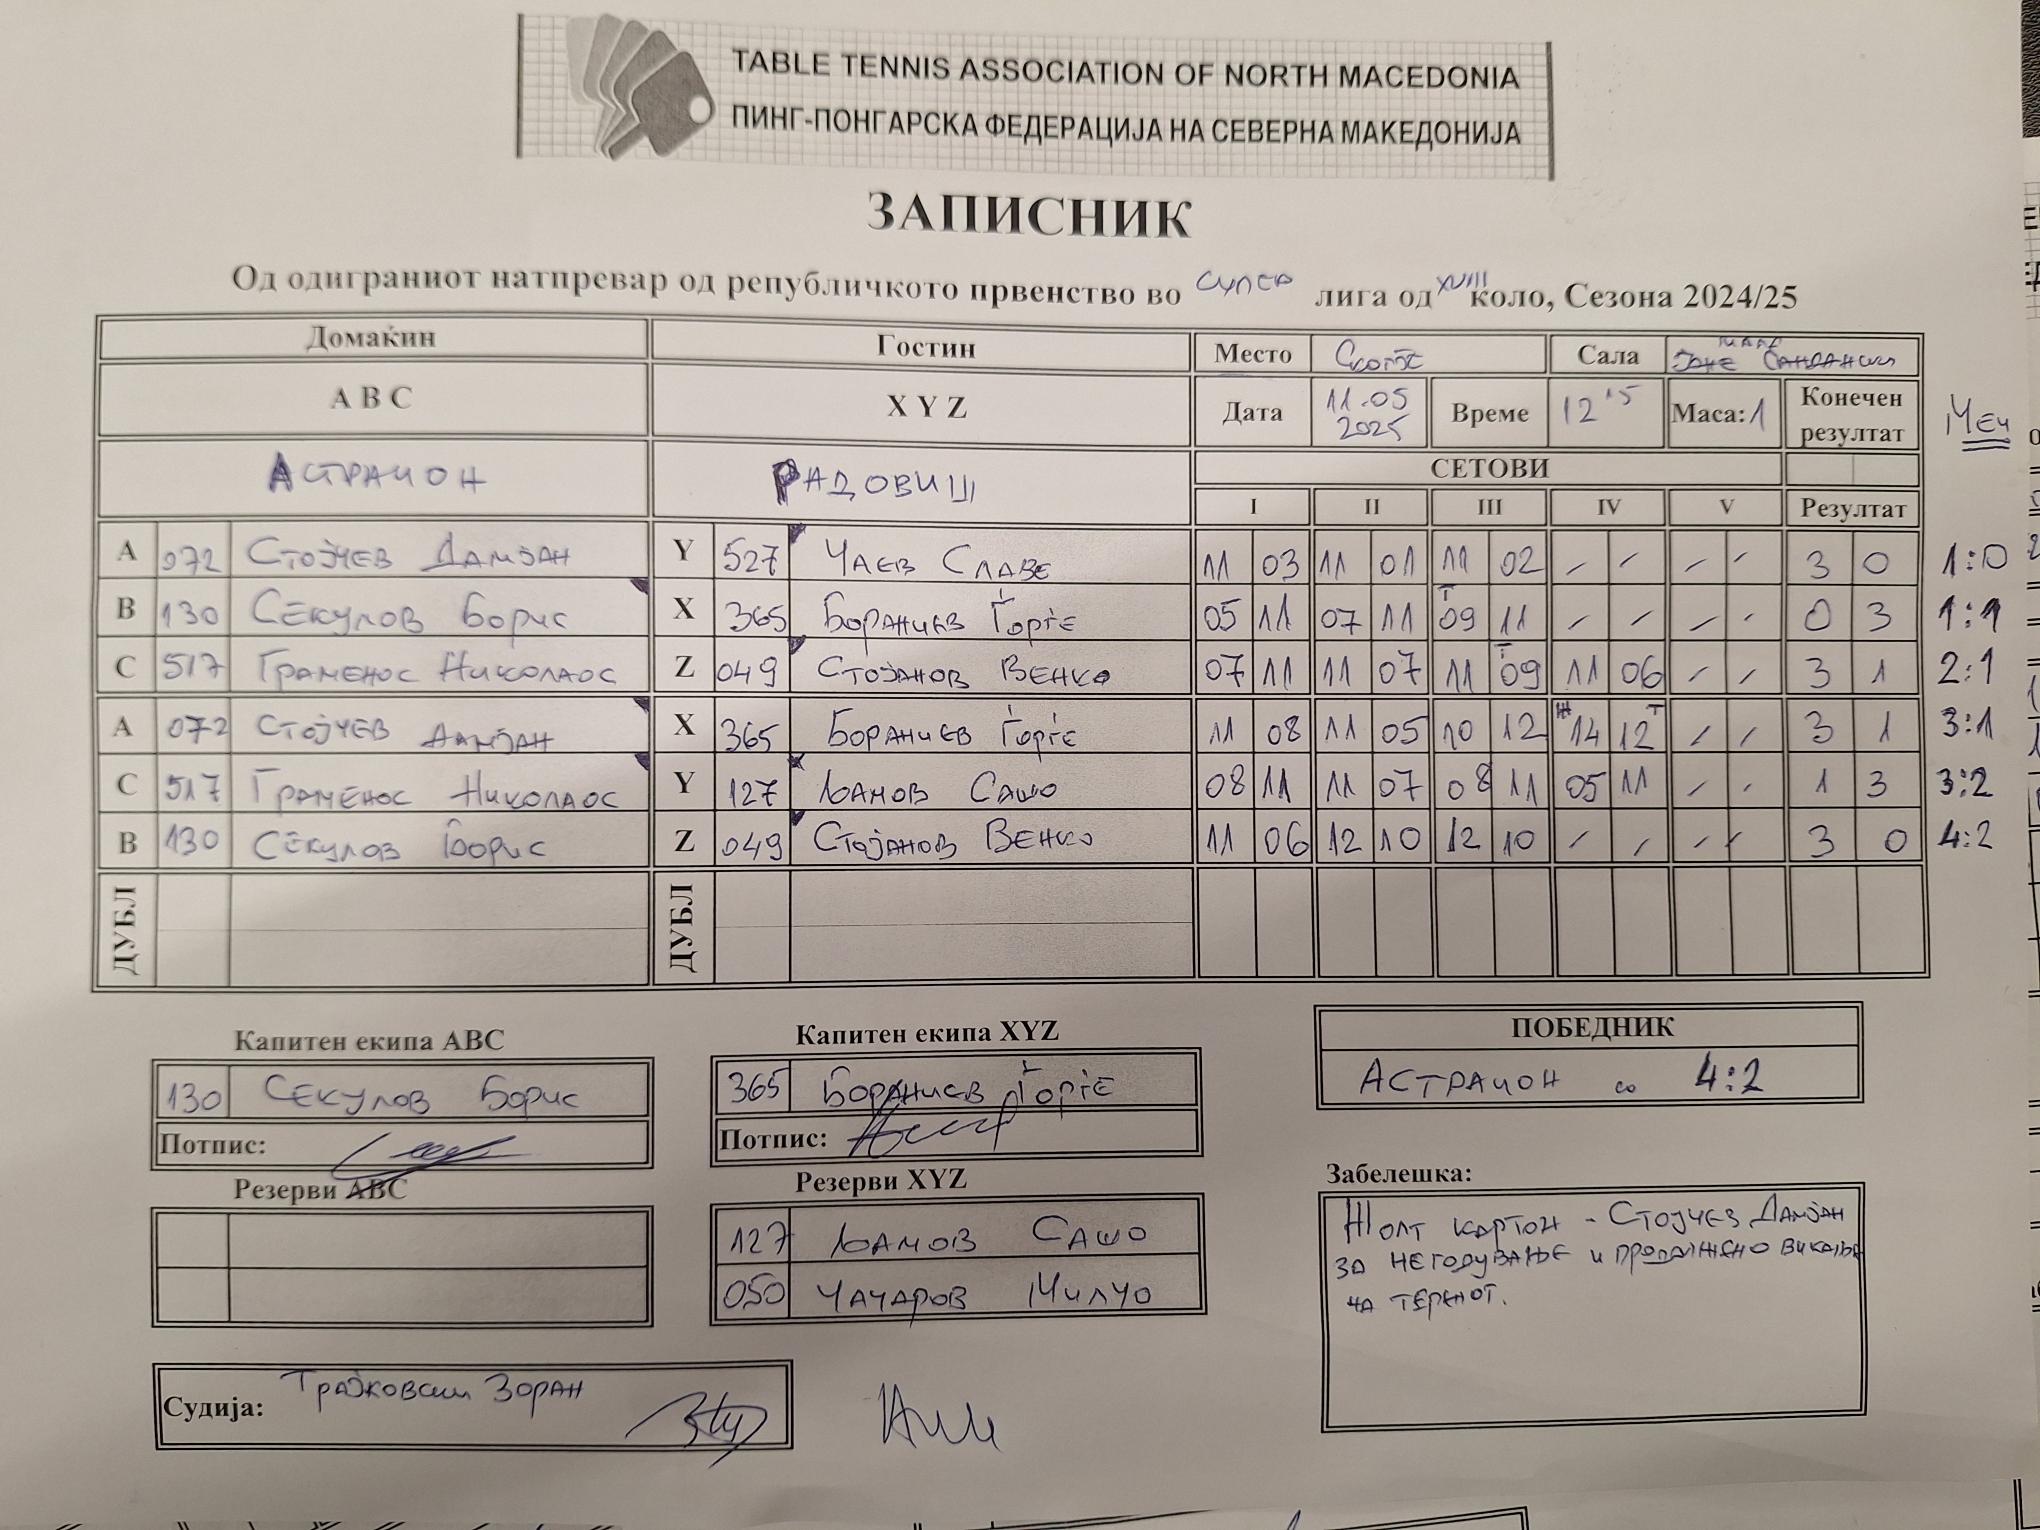 TABLE TENNIS ASSOCIATION OF NORTH MACEDONIA
ПИНГ-ПОНГАРСКА ФЕДЕРАЦИЈА НА СЕВЕРНА МАКЕДОНИЈА
ЗАПИСНИК
Од одиграниот натпревар од републичкото првенство во СУПЕР лига од XVIII коло, Сезона 2024/25
Домаќин Гостин Место Скопје Сала Јане Сандански
A B C X Y Z Дата 11.05 2025 Време 12 15 Маса: 1 Конечен резултат Меч
АСТРАИОН РАДОВИШ СЕТОВИ
I II III IV V Резултат
A 072 Стојчев Дамјан Y 527 Чаев Славе 11 03 11 01 11 02 / / / / 3 0 1:0
B 130 Секулов Борис X 365 Бораниев Ѓорѓе 05 11 07 11 Т 09 11 / / / / 0 3 1:1
C 517 Граменос Николаос Z 049 Стојанов Венко 07 11 11 07 11 Т 09 11 06 / / 3 1 2:1
A 072 Стојчев Дамјан X 365 Бораниев Ѓорѓе 11 08 11 05 10 12 Ж 14 12 Т / / 3 1 3:1
C 517 Граменос Николаос Y 127 Ѓамов Сашо 08 11 11 07 08 11 05 11 / / 1 3 3:2
B 130 Секулов Борис Z 049 Стојанов Венко 11 06 12 10 12 10 / / / / 3 0 4:2
ДУБЛ ДУБЛ
Капитен екипа ABC Капитен екипа XYZ ПОБЕДНИК
130 Секулов Борис 365 Бораниев Ѓорѓе АСТРАИОН со 4:2
Потпис: Потпис:
Резерви ABC Резерви XYZ Забелешка:
127 Ѓамов Сашо
050 Чачаров Милчо
Жолт картон - Стојчев Дамјан
за негодување и продолжено викање
на теренот.
Судија: Трајковски Зоран